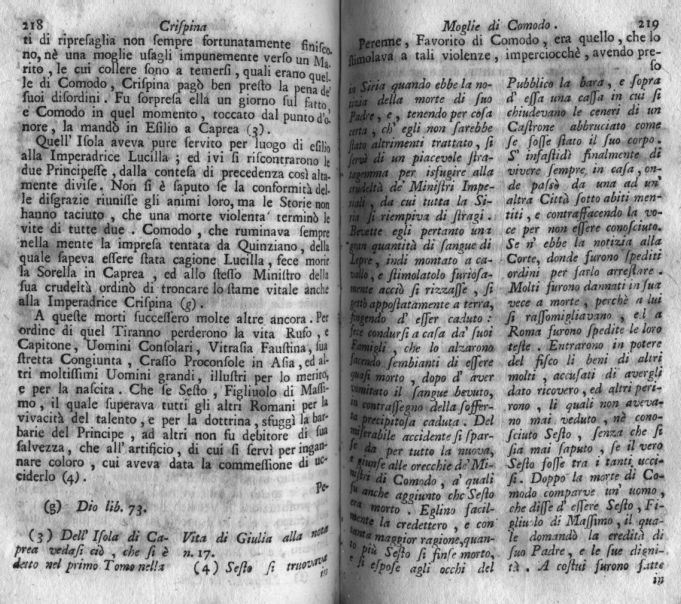 218 Crispina
ti di ripresaglia non sempre fortunatamente finisco-
no, nè una moglie usagli impunemente verso un Ma-
rito, le cui collere sono a temersi, quali erano quel-
le di Comodo, Crispina pagò ben presto la pena de'
suoi disordini. Fu sorpresa ella un giorno sul fatto,
e Comodo in quel momento, toccato dal punto d'o-
nore, la mandò in Esilio a Caprea (3).
Quell' Isola aveva pure servito per luogo di esilio
alla Imperadrice Lucilla; ed ivi si riscontrarono le
due Principesse, dalla contesa di precedenza così alta-
mente divise. Non si è saputo se la conformità del-
le disgrazie riunisse gli animi loro, ma le Storie non
hanno taciuto, che una morte violenta terminò le
vite di tutte due. Comodo, che ruminava sempre
nella mente la impresa tentata da Quinziano, della
quale sapeva essere stata cagione Lucilla, fece morir
la Sorella in Caprea, ed allo stesso Ministro della
sua crudeltà ordinò di troncare lo stame vitale anche
alla Imperadrice Crispina (g).
A queste morti successero molte altre ancora. Per
ordine di quel Tiranno perderono la vita Rufo, e
Capitone, Uomini Consolari, Vitrasia Faustina, sua
stretta Congiunta, Crasso Proconsole in Asia, ed al-
tri moltissimi Uomini grandi, illustri per lo merito,
e per la nascita. Che se Sesto, Figliuolo di Massi-
mo, il quale superava tutti gli altri Romani per la
vivacità del talento, e per la dottrina, sfuggì la bar-
barie del Principe, ad altri non fu debitore di sua
salvezza, che all' artificio, di cui si servì per ingan-
nare coloro, cui aveva data la commessione di uc-
ciderlo (4).
Pe-
(g) Dio lib. 73.
(3) Dell' Isola di Ca-
prea vedasi ciò, che si è
detto nel primo Tomo nella
Vita di Giulia alla nota
n. 17.
(4) Sesto si truovava
in
Moglie di Comodo. 219
Perenne, Favorito di Comodo, era quello, che lo
stimolava a tali violenze, imperciocchè, avendo pre-
so
in Siria quando ebbe la no-
tizia della morte di suo
Padre, e, tenendo per cosa
certa, ch' egli non sarebbe
stato altrimenti trattato, si
servì di un piacevole stra-
tagemma per isfugire alla
crudeltà de' Ministri Impe-
riali, da cui tutta la Si-
ria si riempiva di stragi.
Bevette egli pertanto una
gran quantità di sangue di
Lepre, indi montato a ca-
vallo, e stimolatolo furiosa-
mente acciò si rizzasse, si
gettò appostatamente a terra,
fingendo d' esser caduto:
fece condursi a casa da' suoi
Famigli, che lo alzarono
facendo sembianti di essere
quasi morto, dopo d' aver
vomitato il sangue bevuto,
in contrassegno della soffer-
ta precipitosa caduta. Del
miserabile accidente si spar-
se da per tutto la nuova,
e giunse alle orecchie de' Mi-
nistri di Comodo, a' quali
fu anche aggiunto che Sesto
era morto. Eglino facil-
mente la credettero, e con
tanta maggior ragione, quan-
to più Sesto si finse morto,
e si espose agli occhi del
Pubblico la bara, e sopra
d' essa una cassa in cui si
chiudevano le ceneri di un
Castrone abbruciato come
se fosse stato il suo corpo.
S' infastidì finalmente di
vivere sempre in casa, on-
de passò da una ad un'
altra Città sotto abiti men-
titi, e contraffacendo la vo-
ce per non essere conosciuto.
Se n' ebbe la notizia alla
Corte, donde furono spediti
ordini per farlo arrestare.
Molti furono dannati in sua
vece a morte, perchè a lui
si rassomigliavano, ed a
Roma furono spedite le loro
teste. Entrarono in potere
del fisco li beni di altri
molti, accusati di avergli
dato ricovero, ed altri peri-
rono, li quali non aveva-
no mai veduto, nè cono-
sciuto Sesto, senza che si
sia mai saputo, se il vero
Sesto fosse tra i tanti ucci-
si. Doppo la morte di Co-
modo comparve un' uomo,
che disse d' essere Sesto, Fi-
gliuolo di Massimo, il qua-
le domandò la eredità di
suo Padre, e le sue digni-
tà. A costui furono fatte
in